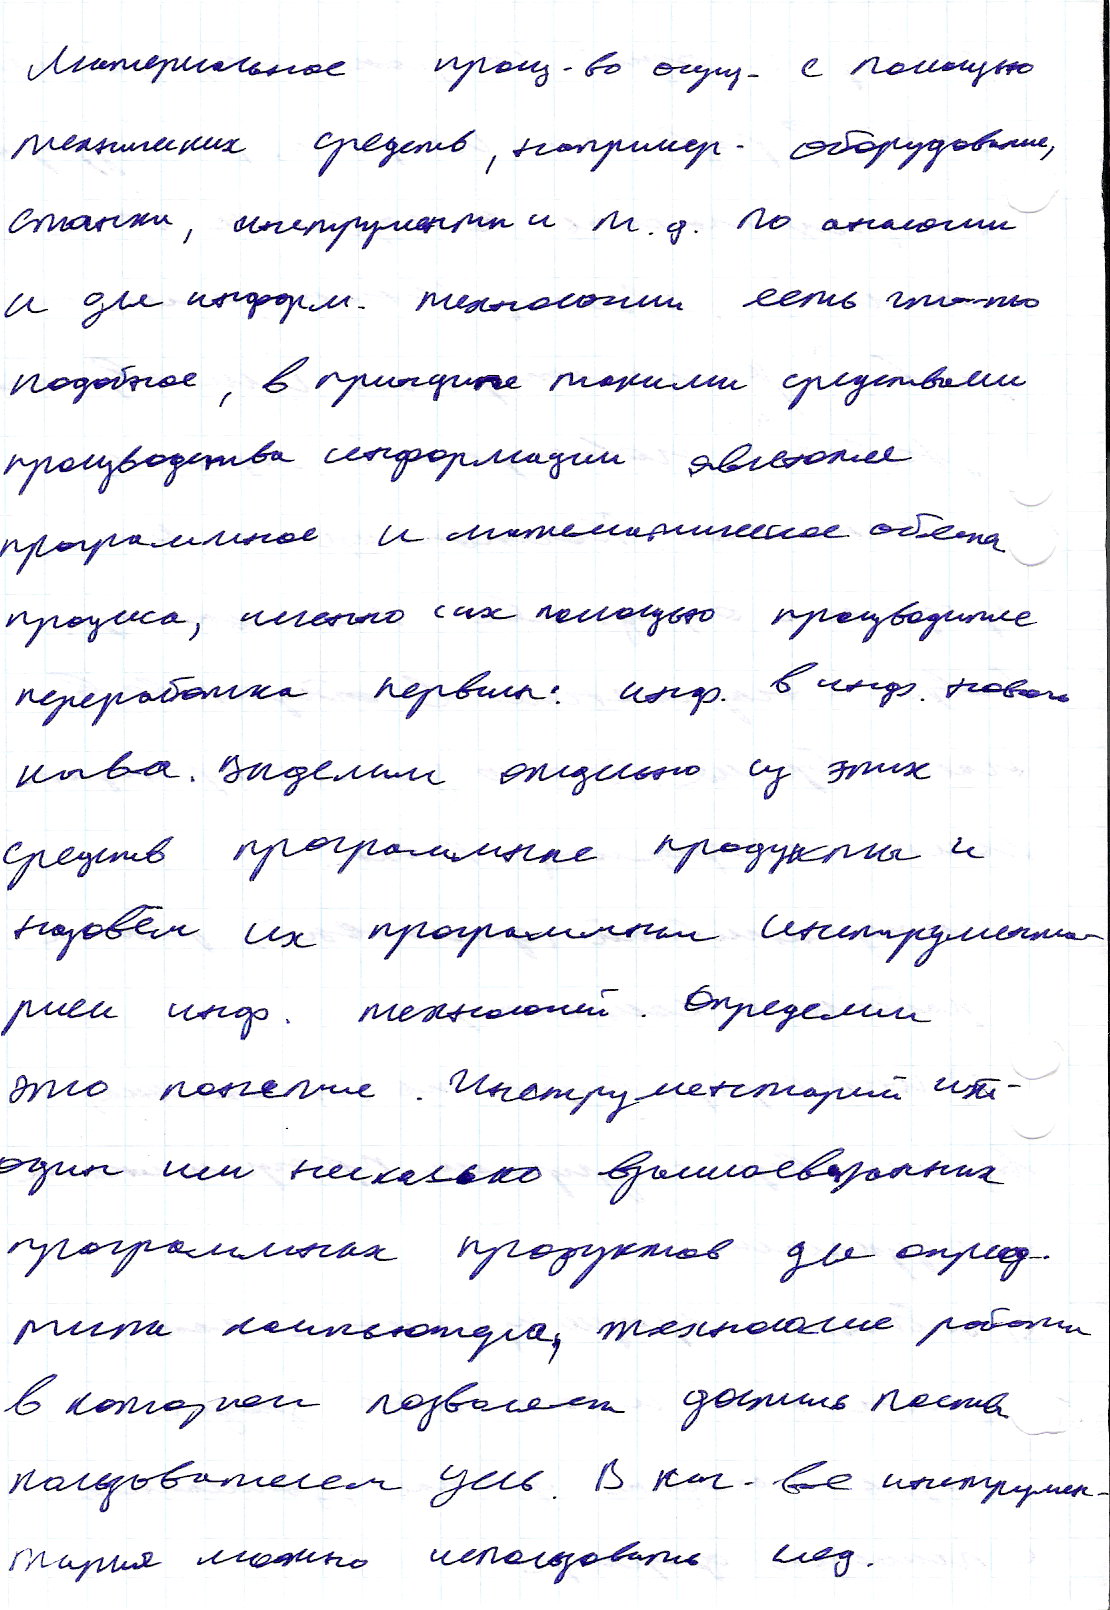 Материальное произ-во осущ- с помощью
технических средств, например- оборудование,
станки, инструменты и т.д. По аналогии
и для информ. технологии есть что-то
подобное, в принципе такими средствами
производства информации являются
программное и математическое обеспе
процесса, именно с их помощью производится
переработка первич. инф. в инф. нового
кива. Выделим отдельно из этих
средств программные продукты и
назовём их программным инструмента-
рием инф. технологий. Определим
это понятие. Инструментарий ИТ-
один или несколько взаимосвязанных
программных продуктов для опред.
типа компьютера, технология работы
в котором позволяет достичь поставл
пользователем цель. В кач-ве инструмен-
тария можно использовать след.